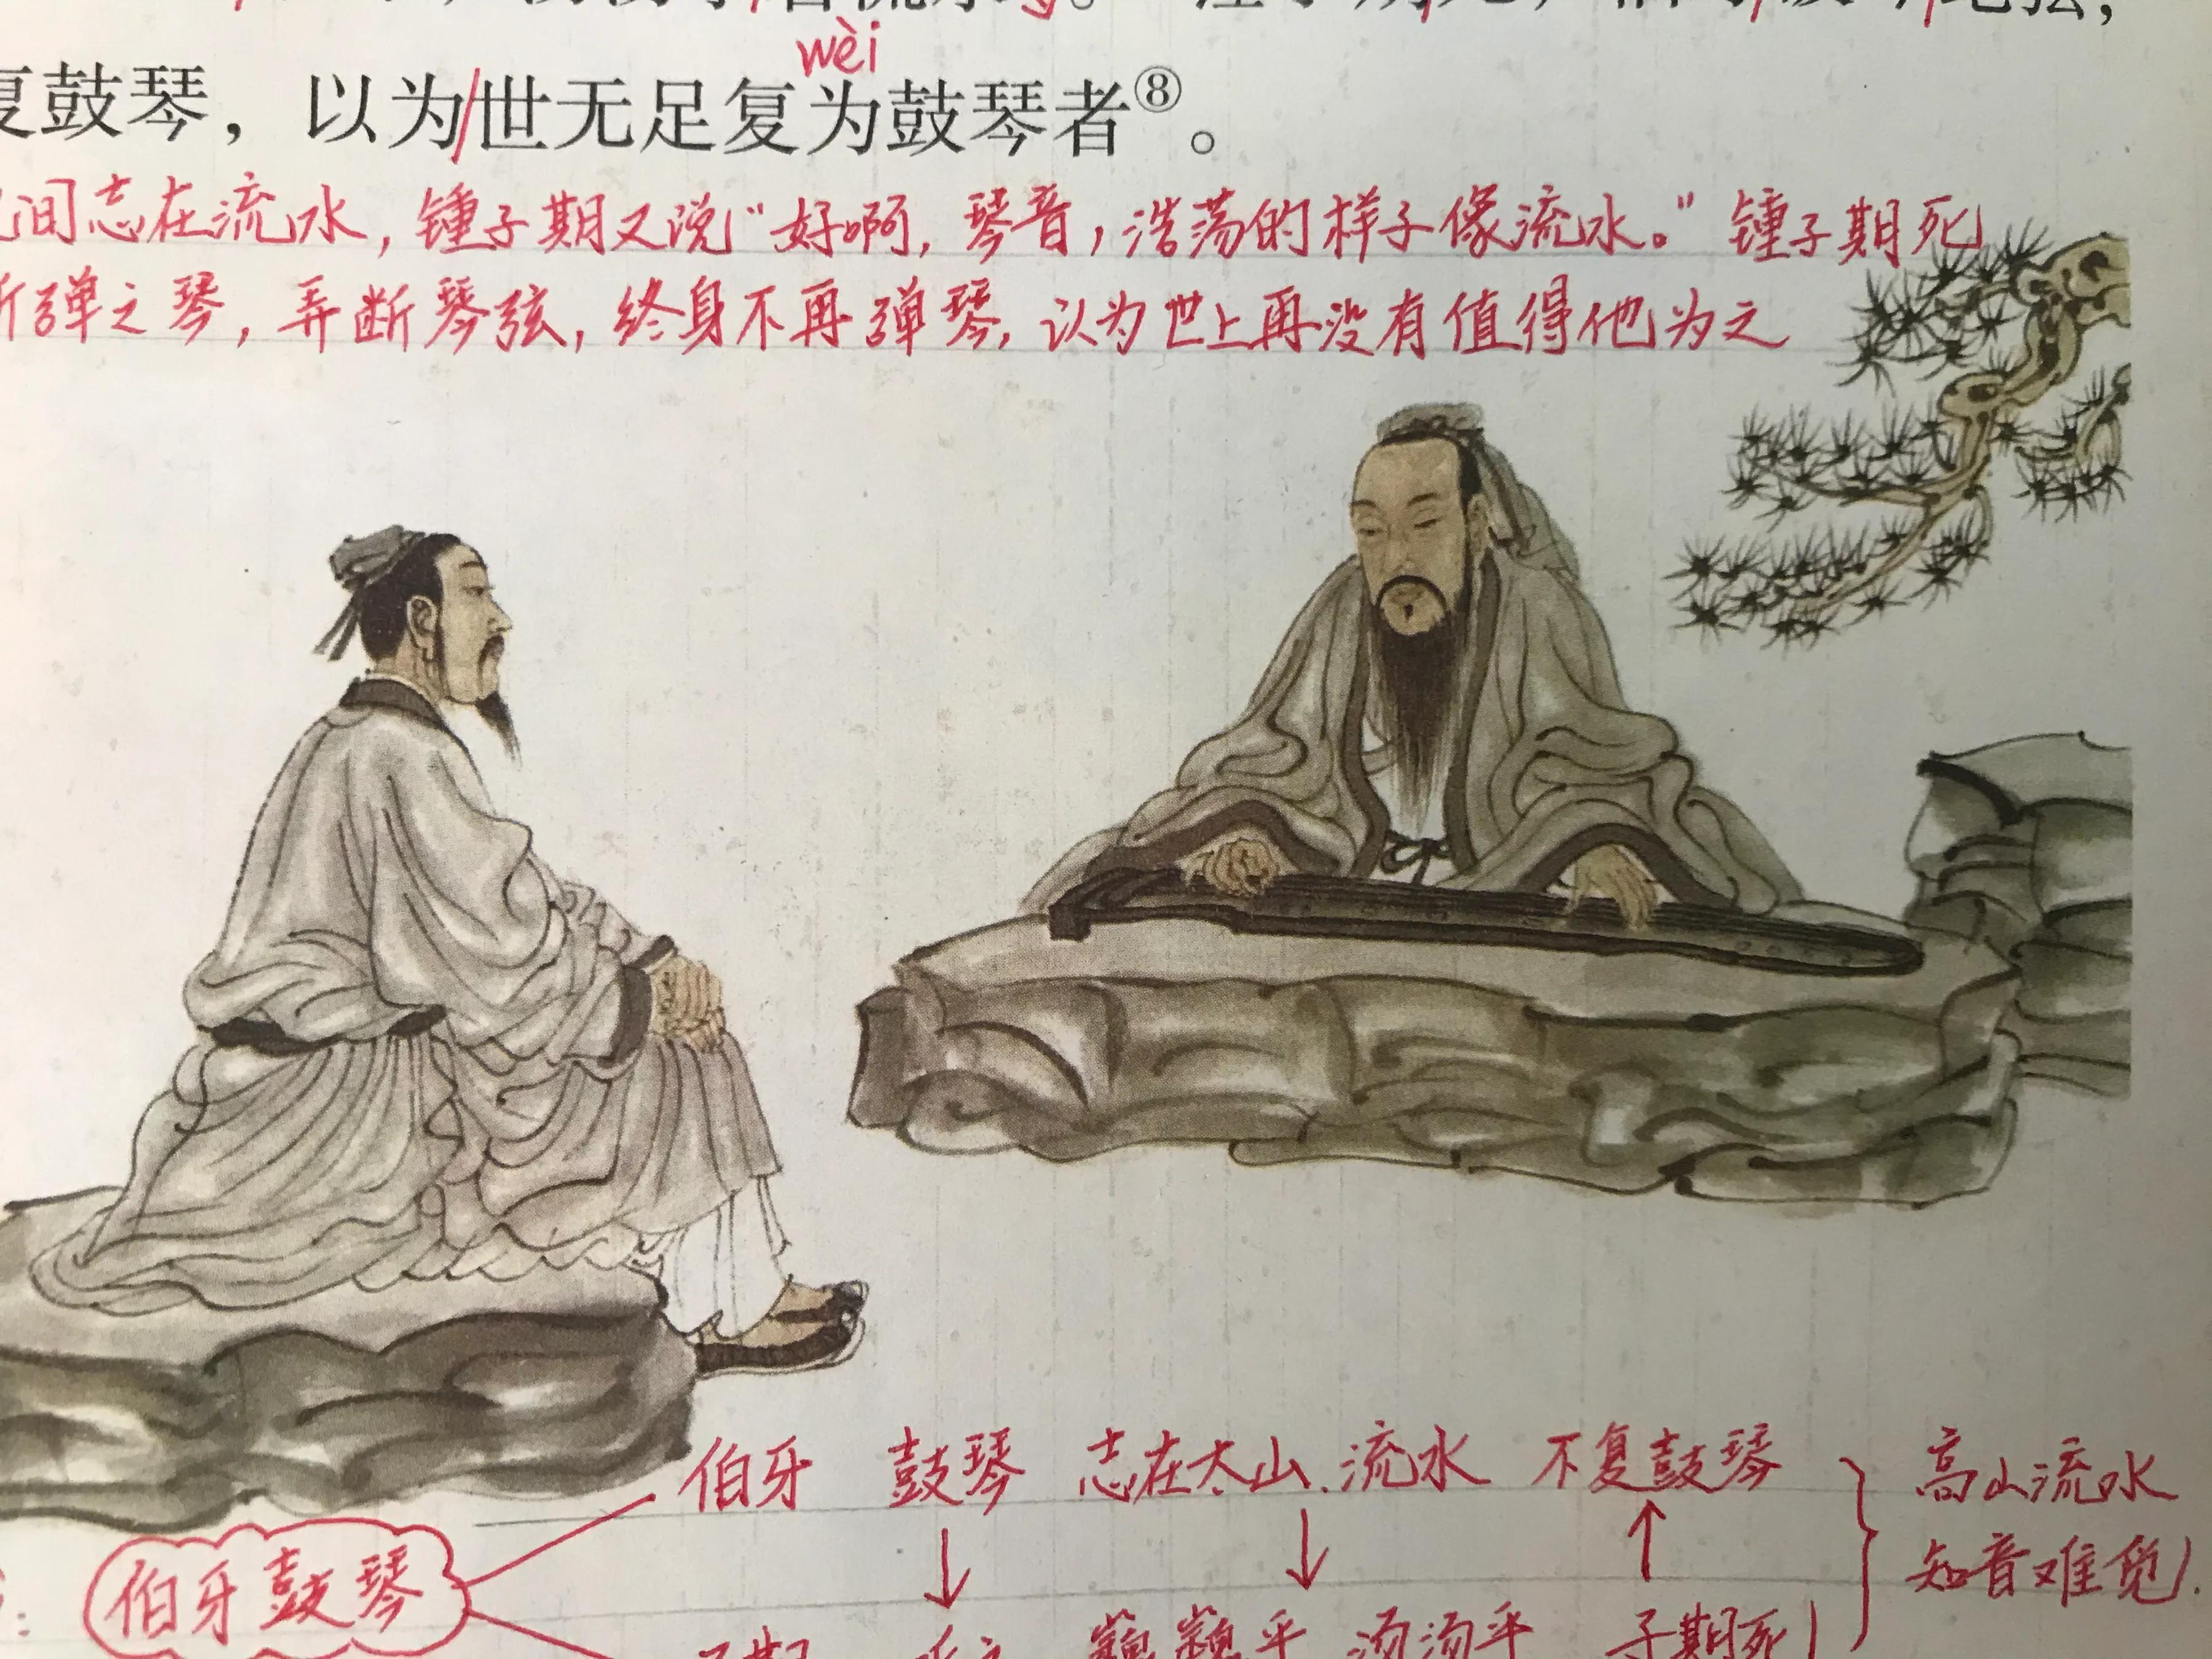 wèi
复鼓琴，以为/世无足复为鼓琴者⑧。
间志在流水，锺子期又说“好啊，琴音，浩荡的样子像流水。”锺子期死
所弹之琴，弄断琴弦，终身不再弹琴，认为世上再没有值得他为之
伯牙 鼓琴 志在太山、流水 不复鼓琴
高山流水
知音难觅.
伯牙鼓琴
巍巍乎 汤汤乎 子期死